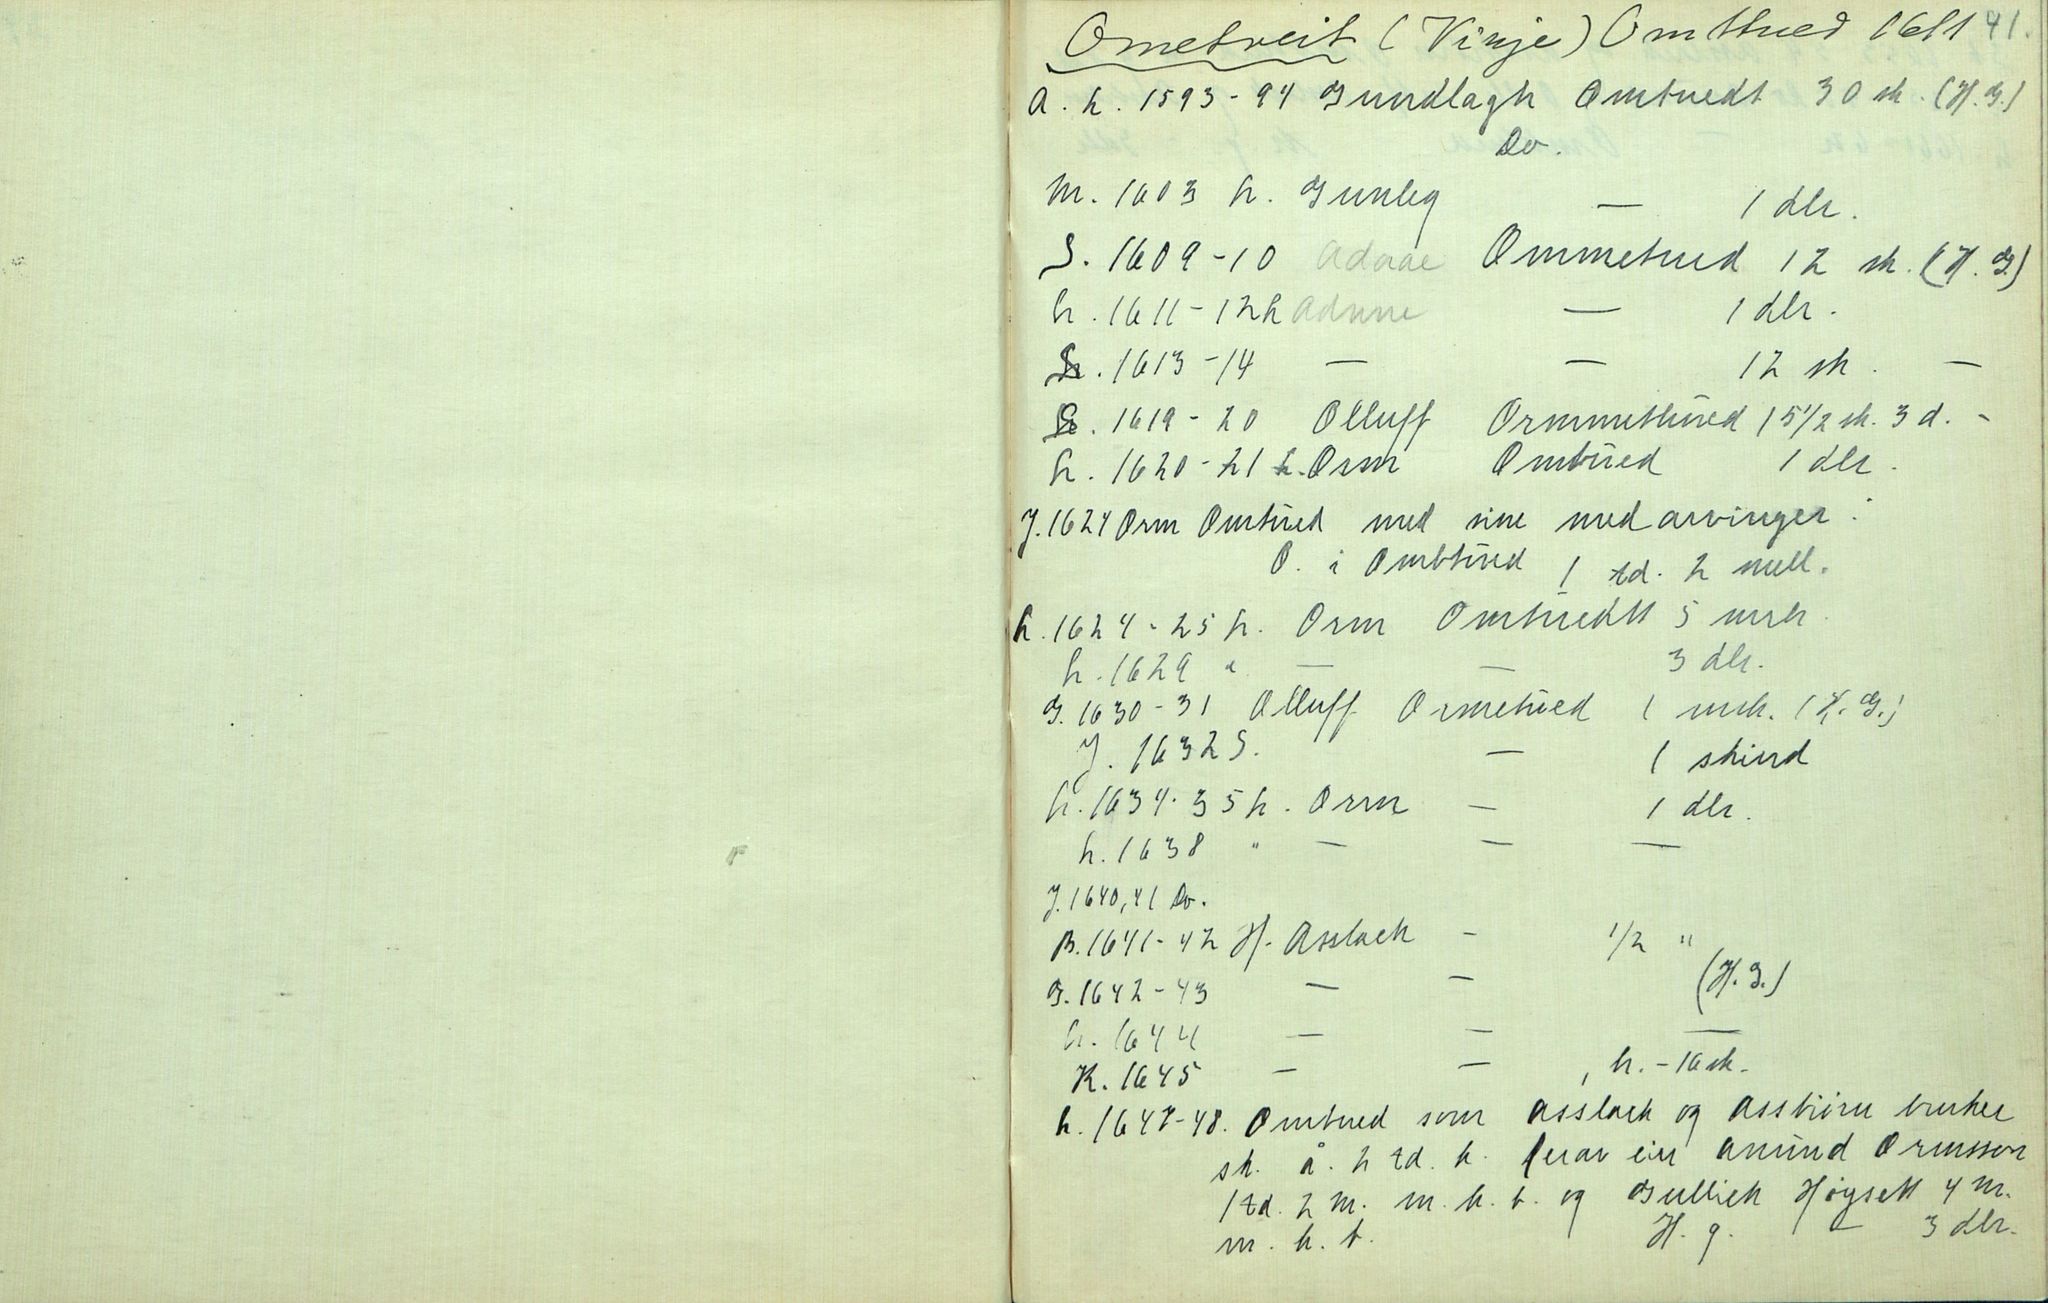 Ometveit (Vinje) Omthued 1611 41.
A. h. 1593-94 Gundlagh Omtuedt 30 sk. (H. G.)
Do.
M. 1603 h. Gunleg — 1 dlr.
S. 1609-10 Adnne Ommetued 12 sk. (H. G.)
h. 1611-12 h Adnne — 1 dlr.
S. 1613-14 — — 12 sk. —
G. 1619-20 Olluff Ormmethued 15 1/2 sk. 3 d. -
h. 1620-21 h. Orm Omtued 1 dlr.
J. 1624 Orm Omtued med sine medarvinger:
O. i Ombtued 1 td. 2 mell.
h. 1624-25 h. Orm Omtuedtt 5 mrk.
h. 1629 " — — 3 dlr.
G. 1630-31 Olluff Ormetued 1 mrk. (H. G.)
J. 1632 S. — 1 skind
h. 1634-35 h. Orm — 1 dlr.
h. 1638 " — — —
J. 1640,41 Do.
B. 1641-42 H. Asslack - 1/2 "
G. 1642-43 — — (H. G.)
h. 1644 — — —
K. 1645 — — , h. - 16 sk.
h. 1647-48. Omtued som Asslack og Assbiørn bruker
sk. å. 2 td. k. herav eier Amund Ormsson
1 td. 2 m. m. b. b. og Gullick Høysett 4 m.
m. b. b. H. g. — 3 dlr.